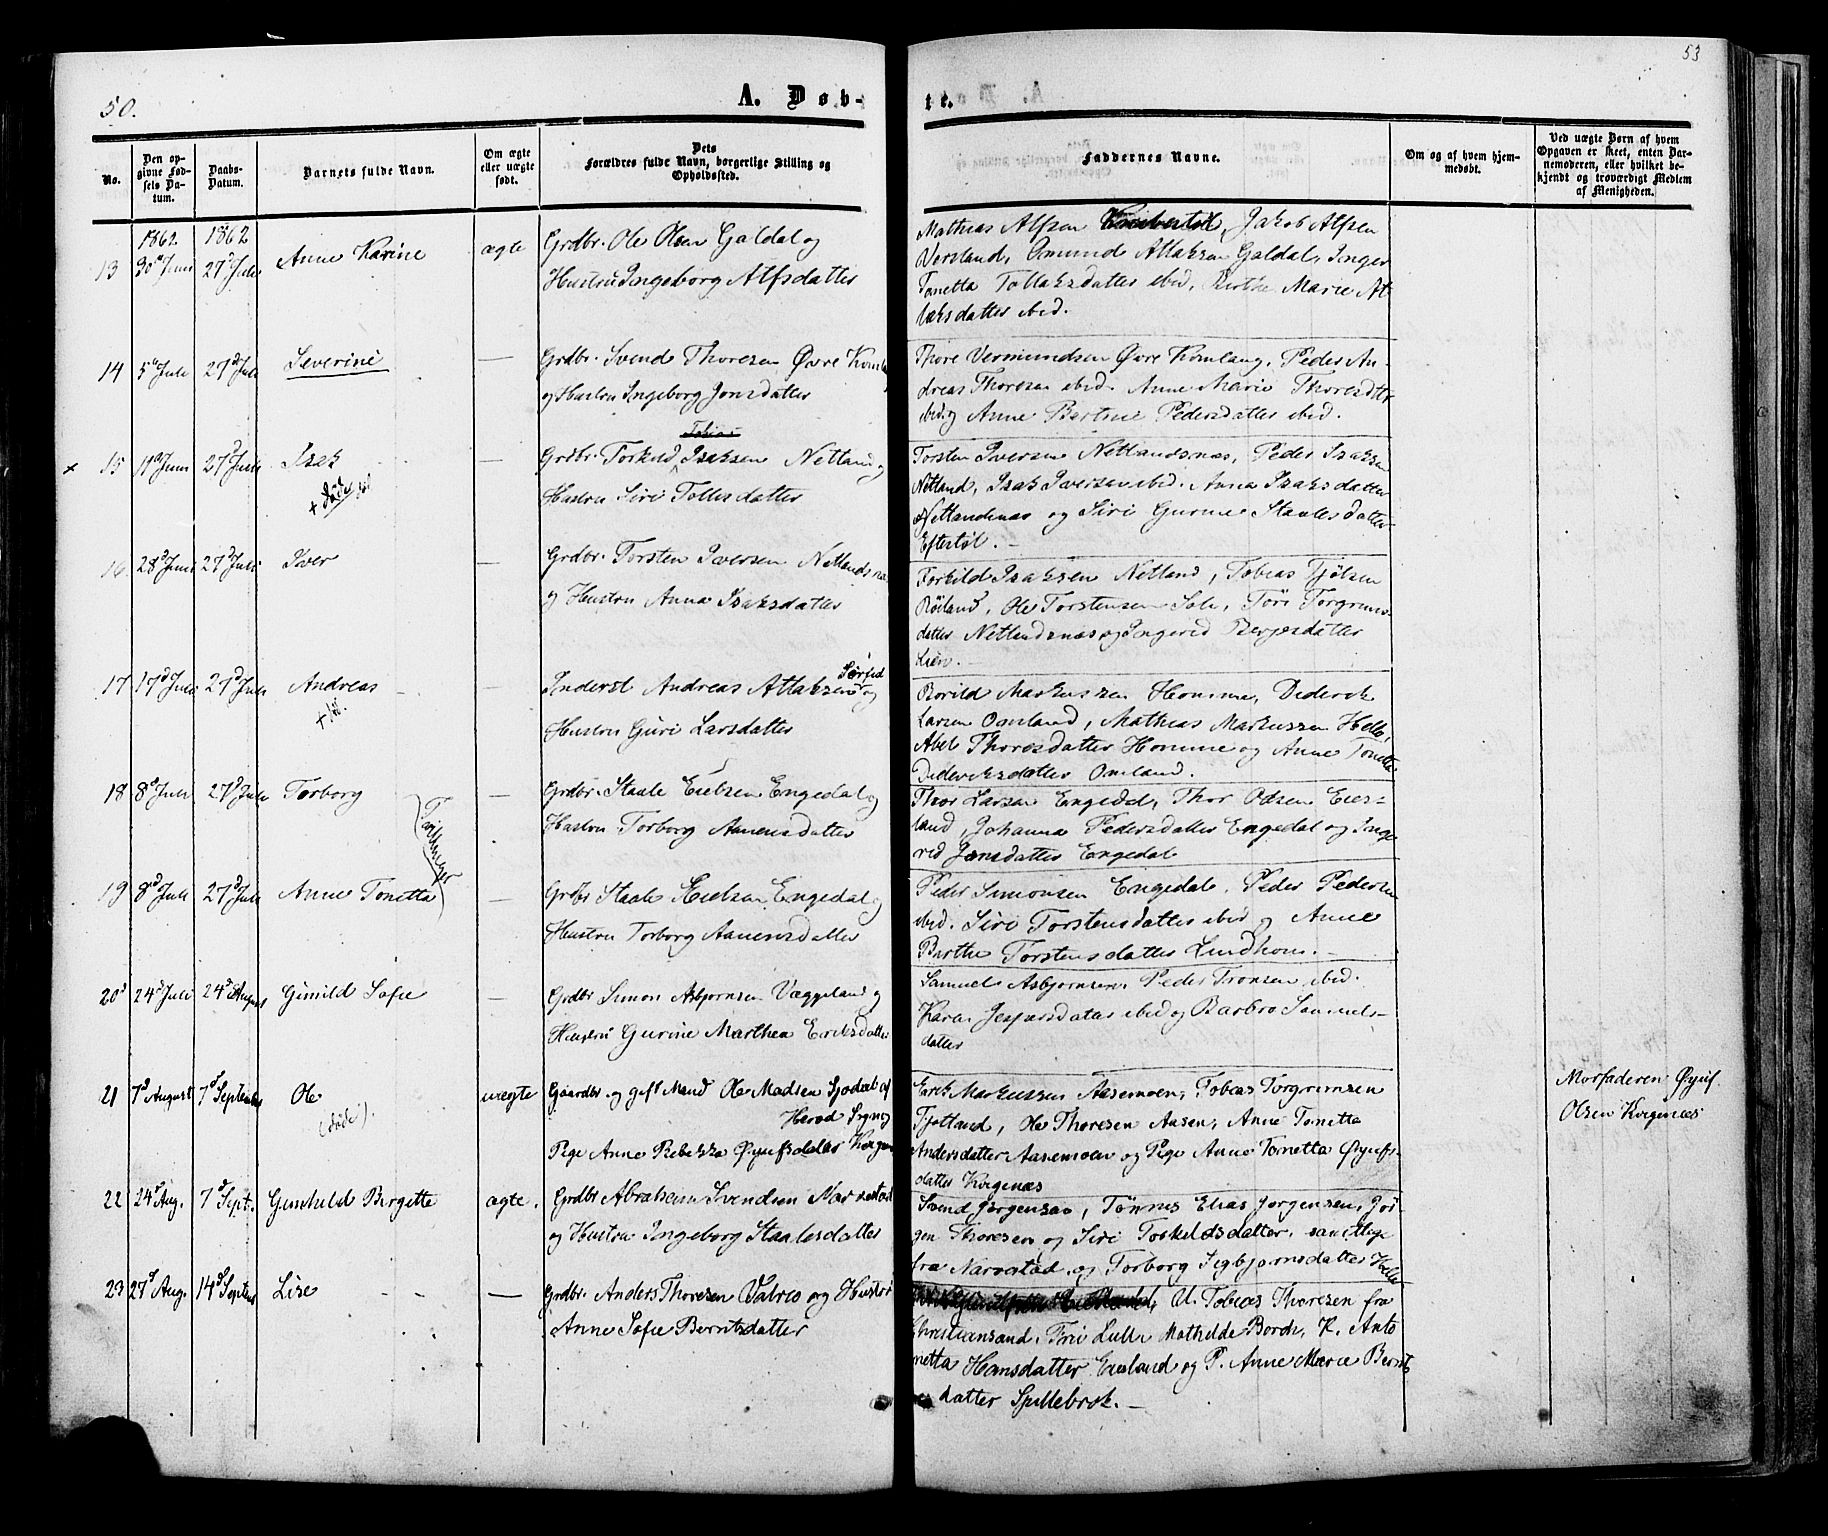 53
50.
A. Døb-
te.
No.
Den op-
givne Fød-
sels Da-
tum.
Daabs-
Datum.
Barnets fulde Navn.
Om ægte
eller uægte
født.
Dets
Forældres fulde Navn, borgerlige Stilling og
Opholdssted.
Faddernes Navne.
Om og af hvem hjem-
medøbt.
Ved uægte Børn af hvem
Opgaven er skeet, enten Bar-
nemoderen, eller hvilket be-
kjendt og troværdigt Medlem
af Menigheden.
1862 1862
13 30te Juni 27d Juli Anne Karine ægte Grdbr. Ole Olsen Galdal og
Hustru Ingeborg Alfsdatter
Mathias Alfsen Jakob Alfsen
Verstand, Omund Atlaksen Galdal, Inger
Tonetta Tollaksdatter ibid, Birthe Marie At-
laksdatter ibid.
14 5te Juli 27d Juli Severine — Grdbr. Svend Thoresen Øvre
og Hustru Ingeborg Jonsdatter
Thore Vermundsen Øvre Komlang, Peder An-
dreas Thoresen ibid. Anne Marie Thoresdtr
ibid. og Anne Bertine Pedersdatter ibid.
Tobias
x 15 19d Juni 27d Juli Isak — Grdbr. Torkild Isaksen Netland og
+ død
Hustru Siri Tollesdatter
Torsten Iversen Netlandsnæs, Peder Isaksen
Netland, Isak Iversen ibid. Anna Isaksdatter
Netlandsnæs og Siri Gurine Staalesdatter
Eftestøl.
16 28d Juni 27d Juli Iver — Grdbr. Torsten Iversen Netlandsnæs
og Hustru Anna Isaksdatter
Torkild Isaksen Netland, Tobias Tjølsen
Røiland, Ole Torstensen Sole, Tori Torgrims-
datter Netlandsnæs og Ingerid Bergesdatter
Lien.
17 17d Juli 27d Juli Andreas — Inderst Andreas Atlaksen og
Hustru Guri Larsdatter
Markussen Homme, Diderik
Larsen Omland, Mathias Markussen Helle,
Abel Thoresdatter Homme og Anne Tonetta
Dideriksdatter Omland.
18 8d Juli 27d Juli Torborg — Grdbr. Staale Eielsen Engedal og
Tvillinger
Hustru Torborg Aanensdatter
Thor Larsen Engedal, Thor Olsen Eies-
land, Johanna Pedersdatter Engedal og Inge
rid Jonsdatter Engedal
19 8d Juli 27d Juli Anne Tonetta — Grdbr. Staale Eielsen Engedal og
Hustru Torborg Aanensdatter
Peder Simonsen Engedal. Peder Pedersen
ibid. Siri Torstensdatter ibid og Anne
Berthe Torstensdatter Lindhom.
20 24d Juli 24d August Gunild Sofie — Grdbr. Simon Asbjørnsen Væggeland og
Hustru Gurine Marthea Eriksdatter
Samuel Asbjørnsen. Peder Tronsen ibid.
Karen Jespersdatter ibid og Barbro Samuels-
datter
21 7d August 7d September Ole uægte Gaardbr. og gift Mand Ole Madsen Sjodal af
(død).
Herod Sogn og
Pige Anne Rebekka Øyufsdatter
Eerik Markussen Aasemoen, Tobias Torgrimsen
Tjotland, Ole Thoresen Aasen, Anne Tonetta
Andersdatter Aasemoen og Pige Anne Tonetta Øyufs-
datter Kvigenæs
Morfaderen Øyuf
Olsen Kvigenæs
22 24d Aug. 7d Sept. Gunhild Birgitte ægte. Grdbr. Abraham Svendsen Narvestad
og Hustru Ingeborg Staalesdatter
Svend Jørgensen, Tønnes Elias Jørgensen, Jør-
gen Thoresen og Siri Torkeldsdatter, samtlige
fra Narvestad og Torborg Sigbjørnsdatter Helle
23 27d Aug. 14d Septbr Lise — Grdbr. Anders Thoresen Valvio og Hustru
Anne Sofie Berntsdatter
U. Tobias Thoresen fra
Christiansand, Frü Lulli Mathilde Borch, K. Anto
netta Hansdatter Eiesland og P. Anne Marie Bernts
datter Spillebrok.